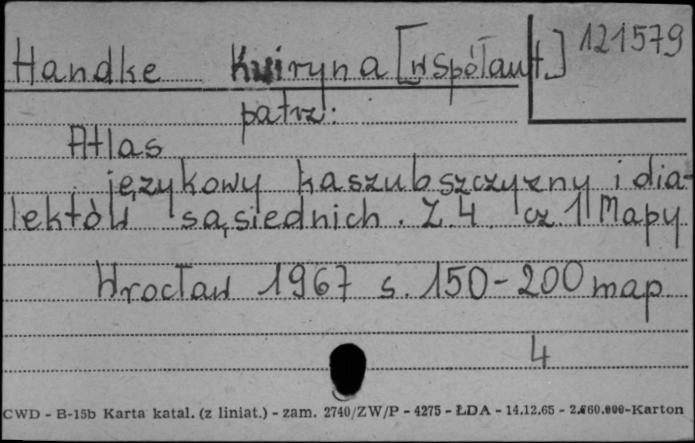 121579
Handke Kwiryna [współaut.]
patrz:
Atlas
językowy kaszubszczyzny i dia-
lektów sąsiednich. Z. 4 cz. 1 Mapy
Wrocław 1967 s. 150-200 map
4
CWD - B-15b Karta katal. (z liniat.) - zam. 2740/ZW/P - 4275 - ŁDA - 14.12.65 - 2.760.000-Karton